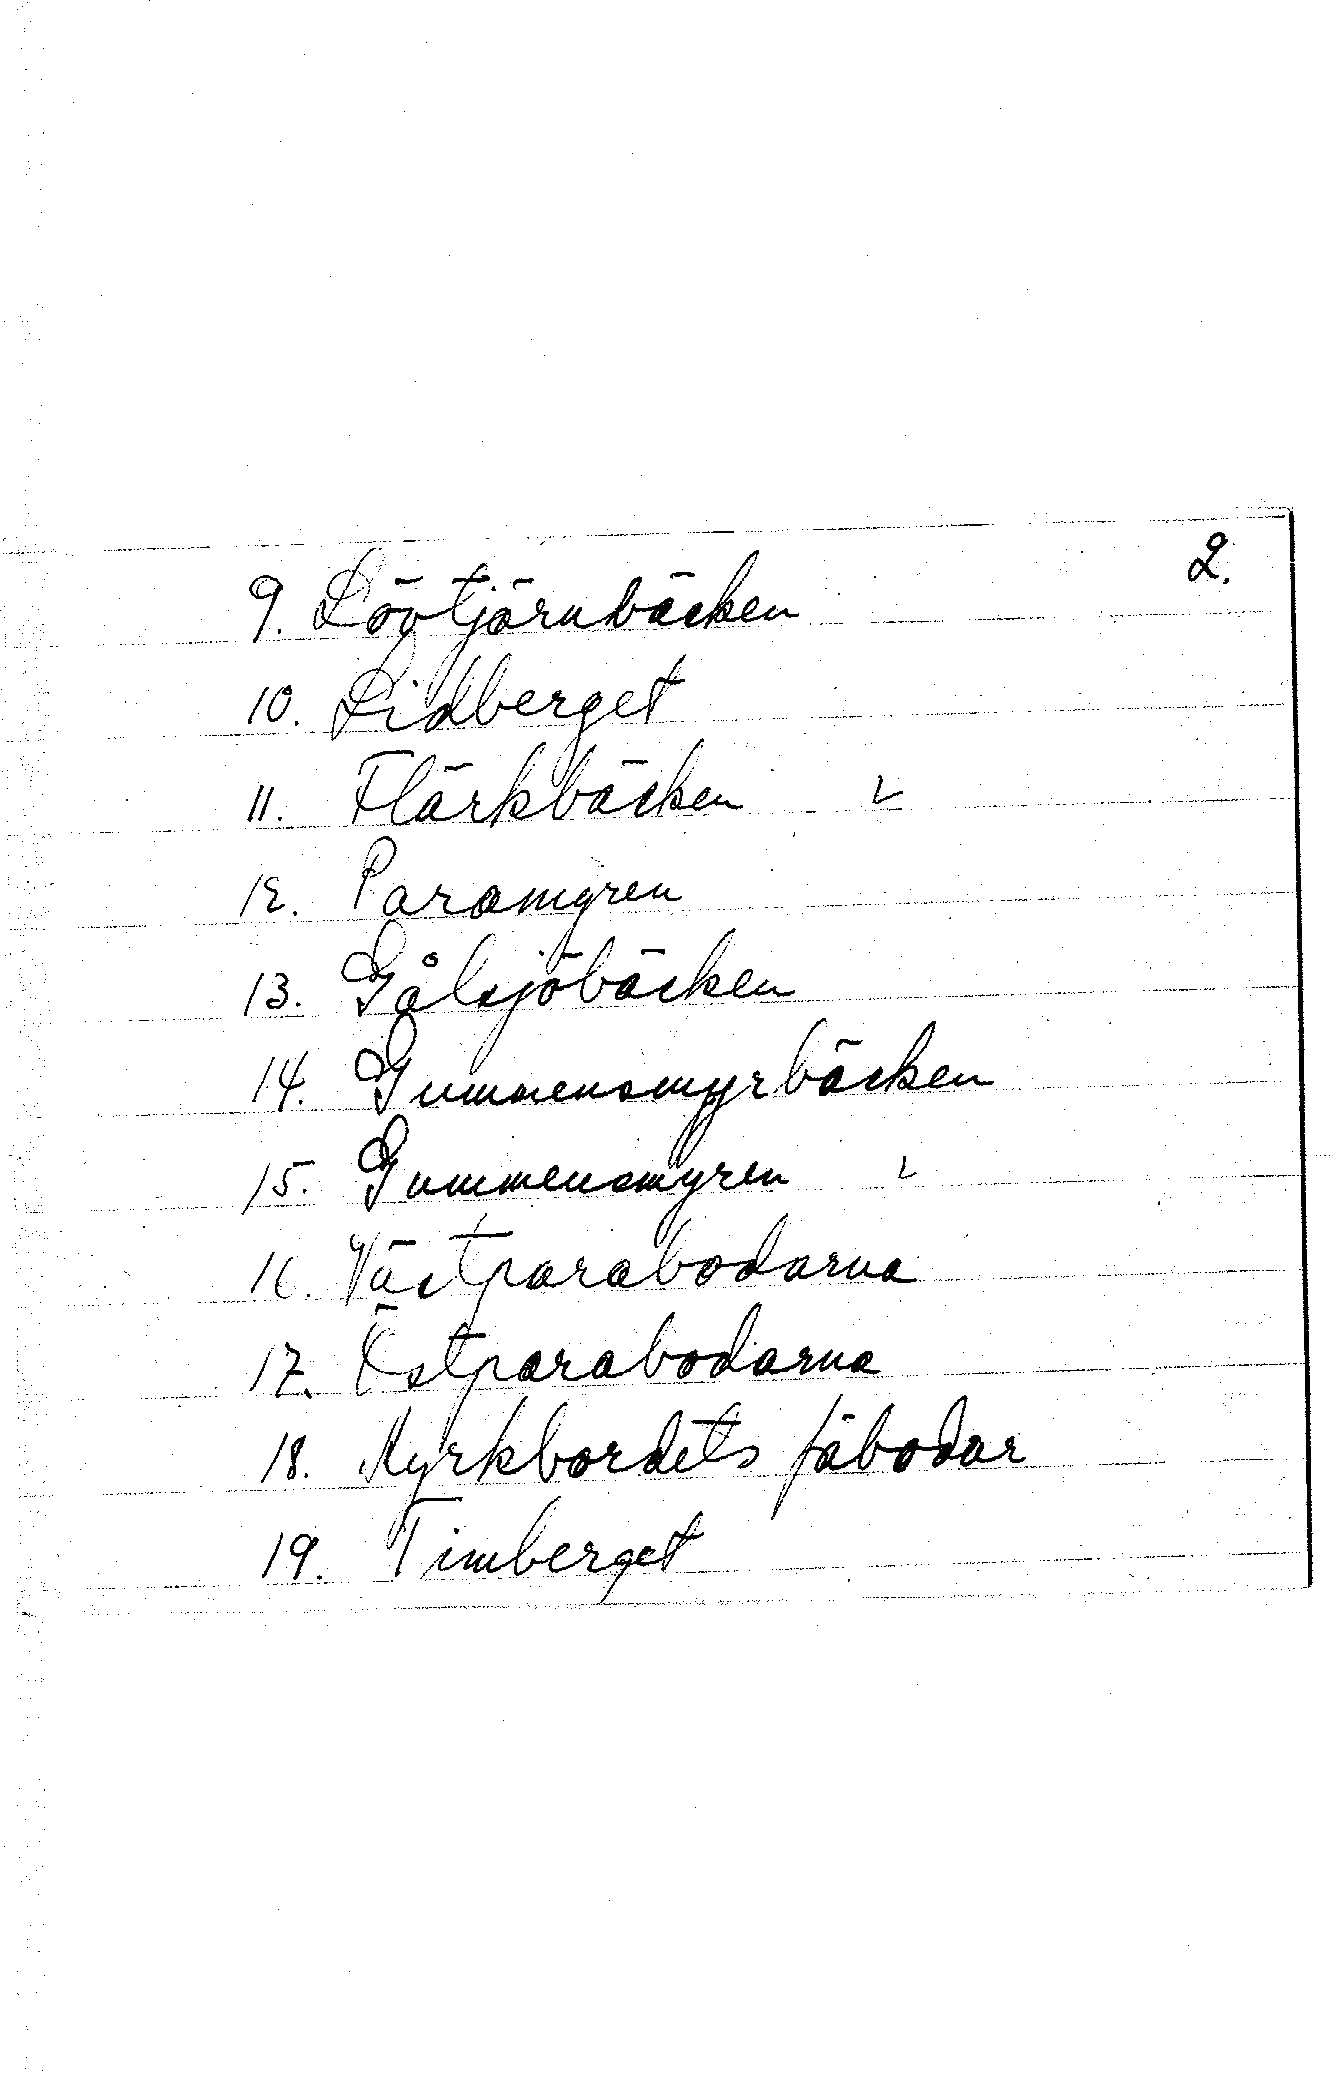 2.
9. Lövtjärnbäcken
10. Lidberget
11. Flärkbäcken ✓
12. Paramyren
13. Gålsjöbäcken
14. Gummensmyrbäcken
15. Gummensmyren ✓
16. Västparabodarna
17. Östparabodarna
18. Kyrkbordets fäbodar
19. Timberget